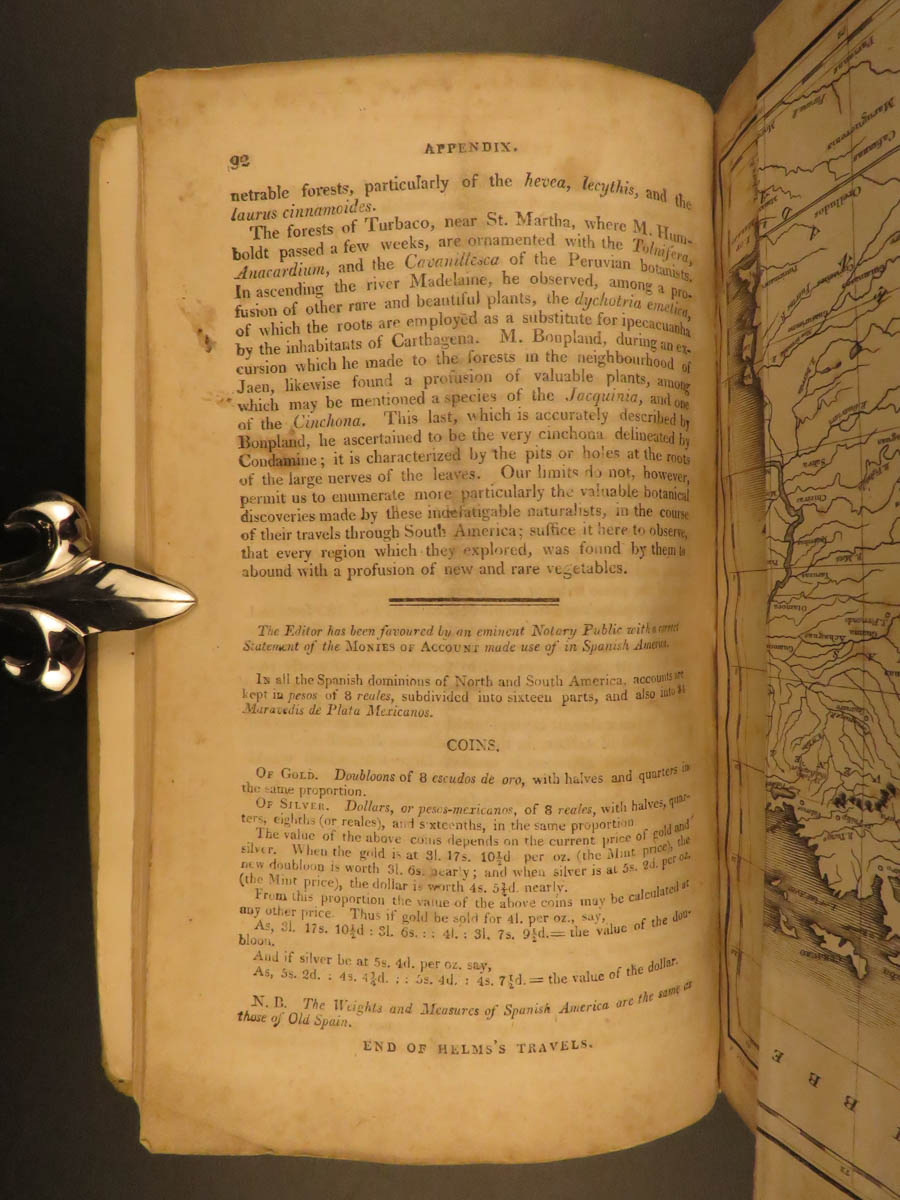 92
APPENDIX.
netrable forests, particularly of the hevea, lecythis, and the
laurus cinnamoides.
The forests of Turbaco, near St. Martha, where M. Hum-
boldt passed a few weeks, are ornamented with the Tolnifera,
Anacardium, and the Cavanillesca of the Peruvian botanists.
In ascending the river Madelaine, he observed, among a pro-
fusion of other rare and beautiful plants, the dychotria emetica,
of which the roots are employed as a substitute for ipecacuanha
by the inhabitants of Carthagena. M. Bonpland, during an ex-
cursion which he made to the forests in the neighbourhood of
Jaen, likewise found a profusion of valuable plants, among
which may be mentioned a species of the Jacquinia, and one
of the Cinchona. This last, which is accurately described by
Bonpland, he ascertained to be the very cinchona delineated by
Condamine; it is characterized by the pits or holes at the roots
of the large nerves of the leaves. Our limits do not, however,
permit us to enumerate more particularly the valuable botanical
discoveries made by these indefatigable naturalists, in the course
of their travels through South America; suffice it here to observe,
that every region which they explored, was found by them to
abound with a profusion of new and rare vegetables.
The Editor has been favoured by an eminent Notary Public with a correct
Statement of the MONIES OF ACCOUNT made use of in Spanish America.
IN all the Spanish dominions of North and South America, accounts are
kept in pesos of 8 reales, subdivided into sixteen parts, and also into 34
Maravedis de Plata Mexicanos.
COINS.
OF GOLD. Doubloons of 8 escudos de oro, with halves and quarters in
the same proportion.
OF SILVER. Dollars, or pesos-mexicanos, of 8 reales, with halves, quar-
ters, eighths (or reales), and sixteenths, in the same proportion
The value of the above coins depends on the current price of gold and
silver. When the gold is at 3l. 17s. 10½d per oz. (the Mint price), the
new doubloon is worth 3l. 6s. nearly; and when silver is at 5s. 2d. per oz.
(the Mint price), the dollar is worth 4s. 5¾d. nearly.
From this proportion the value of the above coins may be calculated at
any other price. Thus if gold be sold for 4l. per oz., say,
As, 3l. 17s. 10½d : 3l. 6s. : : 4l. : 3l. 7s. 9½d. = the value of the dou-
bloon.
And if silver be at 5s. 4d. per oz. say,
As, 5s. 2d. : 4s. : : 5s. 4d. : 4s. = the value of the dollar.
N. B. The Weights and Measures of Spanish America are the same as
those of Old Spain.
END OF HELMS'S TRAVELS.